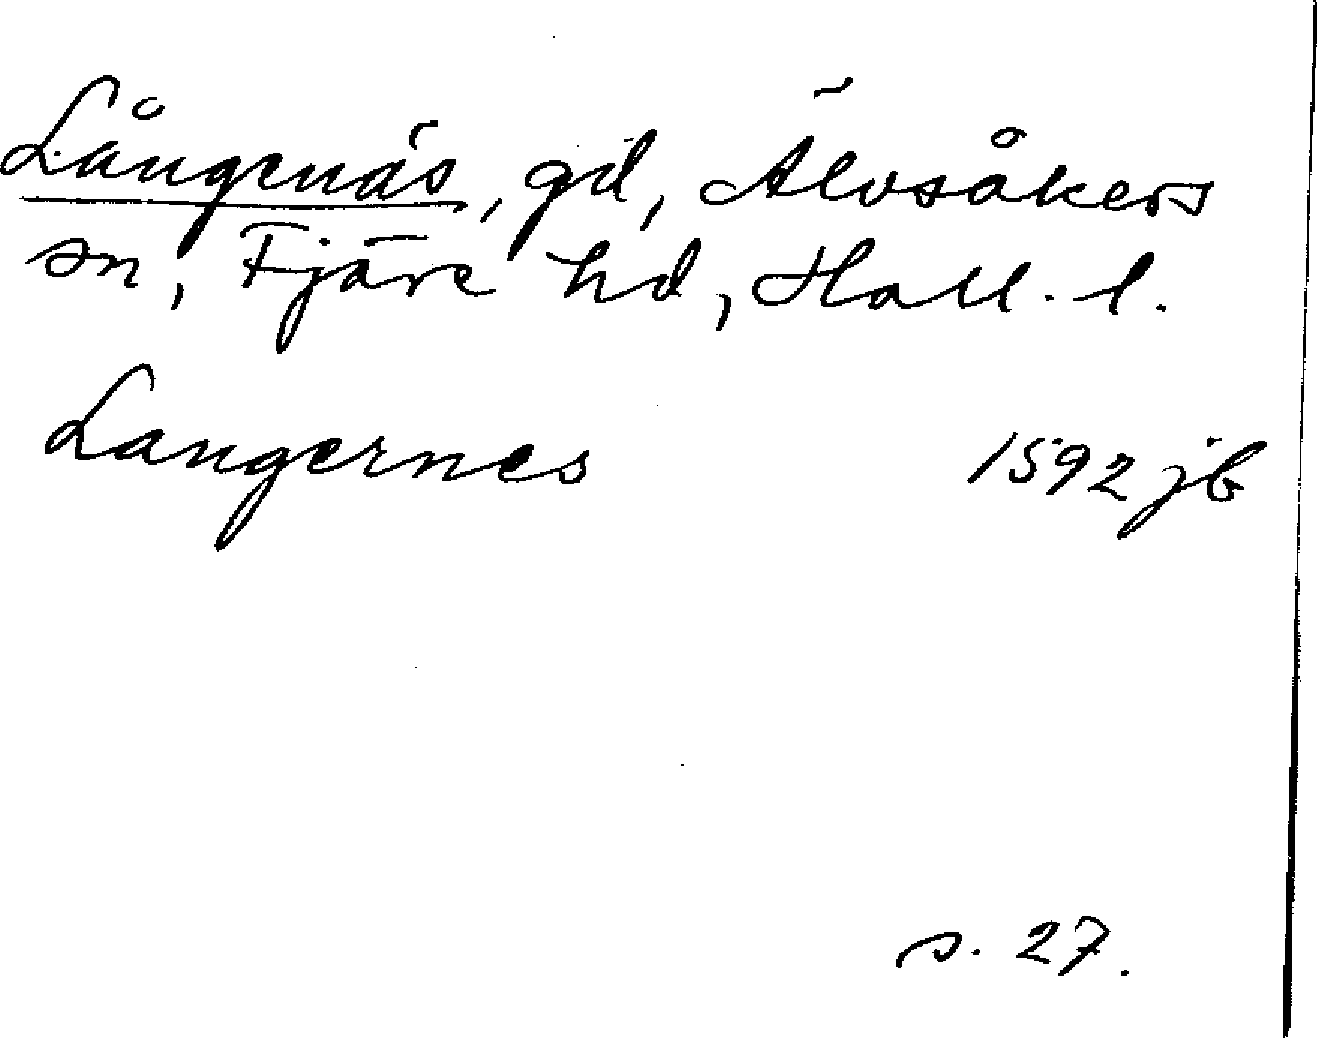 Långenäs, gd, Älvsåkers
sn, Fjäre hd, Hall. l.
Langernes 1592 jb
s. 27.